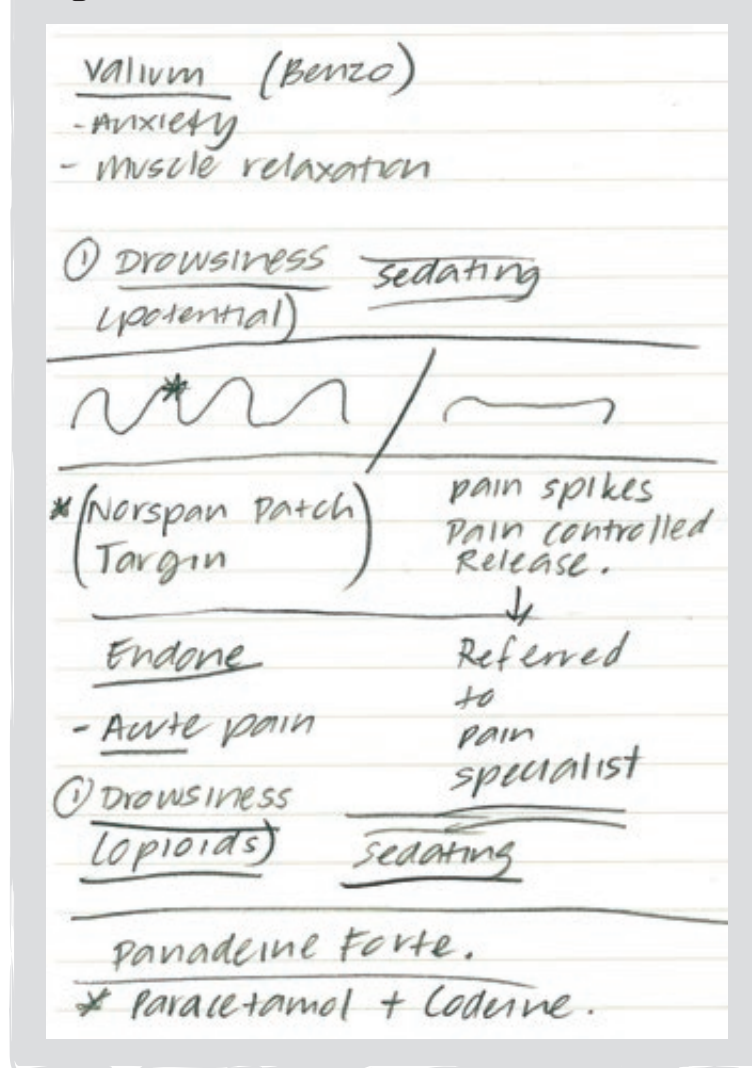 Valium (Benzo)
- Anxiety
- Muscle relaxation
① Drowsiness sedating
(potential)
* (Norspan Patch
Targin)
pain spikes
Pain controlled
Release.
↓
Referred
to
pain
specialist
Endone
- Acute pain
① Drowsiness
(opioids) sedating
Panadeine Forte.
* Paracetamol + Codeine.